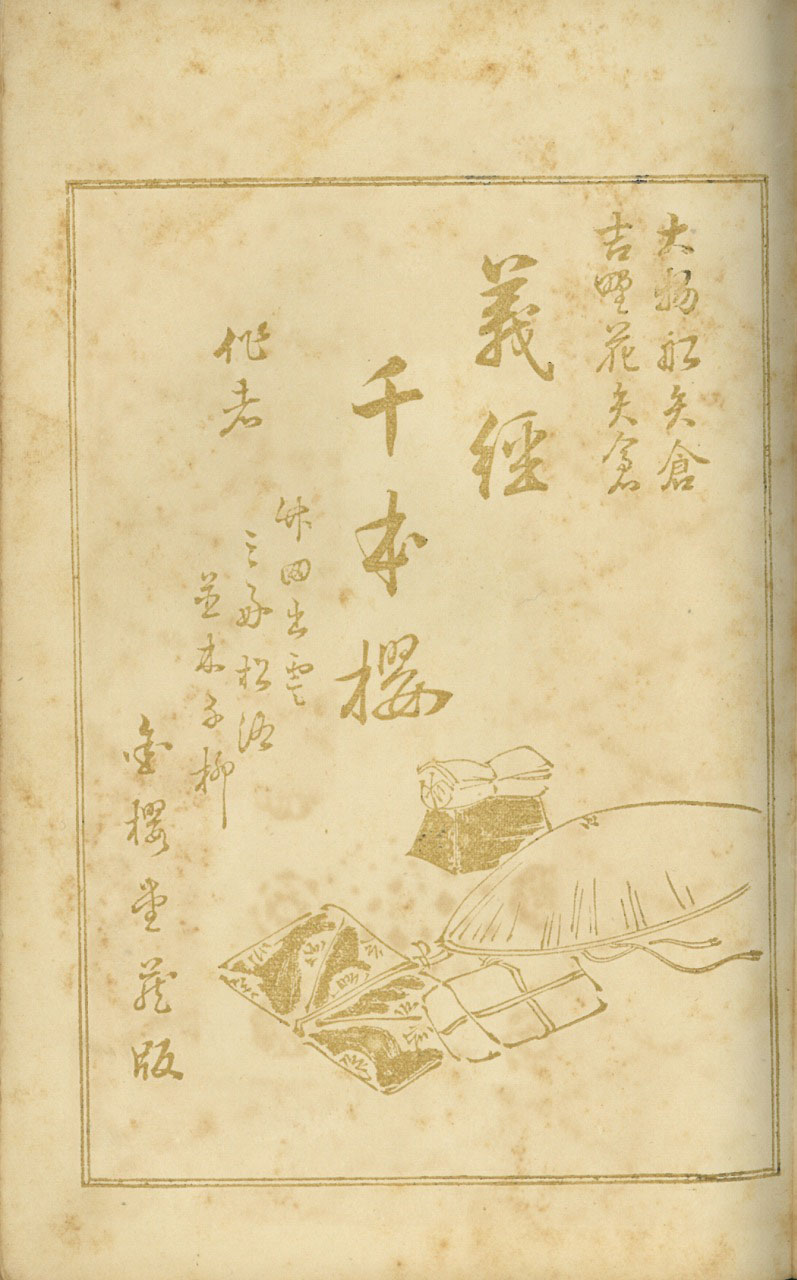 大物船矢倉
吉野花矢倉
義経
千本桜
作者
竹田出雲
三好松洛
並木千柳
金桜堂蔵版